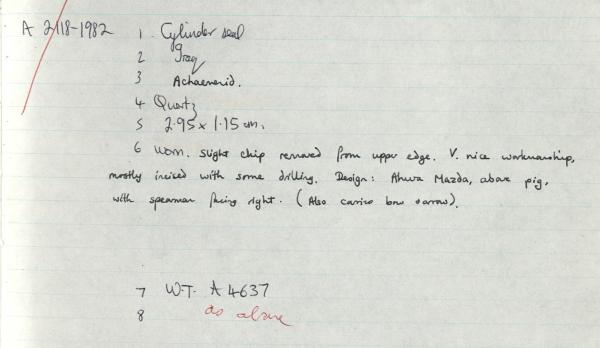 A 2118-1982
1 Cylinder seal
2 Iraq
3 Achaemenid.
4 Quartz
5 2.95 x 1.15 cm.
6 Worn. Slight chip removed from upper edge. V. nice workmanship,
mostly incised with some drilling. Design: Ahura Mazda, above pig,
with spearman facing right. (Also carries bow + arrow).
7 W.T. A 4637
8 as above